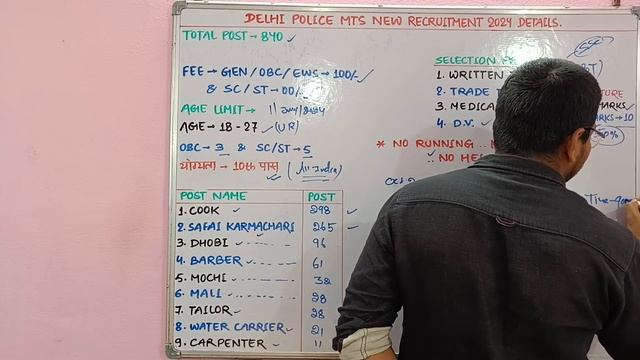 DELHI POLICE MTS NEW RECRUITMENT 2024 DETAILS.
TOTAL POST → 840 ✓
FEE → GEN/OBC/EWS → 100/- ✓
& SC/ST → 00/-
AGE LIMIT →
AGE → 18 - 27 ✓ (UR)
OBC → 3 & SC/ST → 5
योग्यता → 10th पास (All India)
POST NAME POST
1. COOK ✓ 298 ✓
2. SAFAI KARMACHARI 265
3. DHOBI ✓ 96
4. BARBER ✓ 61
5. MOCHI ✓ 38
6. MALI ✓ 28
7. TAILOR ✓ 28
8. WATER CARRIER ✓ 21
9. CARPENTER ✓ 11
SELECTION
1. WRITTEN
2. TRADE
3. MEDICA
4. D.V. ✓
MARKS
* NO RUNNING
NO